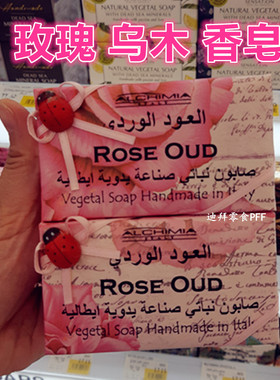 玫瑰 乌木 香皂
NATURAL VEGETAL SOAP
WITH DEAD SEA MINERALS
NATURAL VEGETAL
DEAD SEA
ALCHIMIA
العود الوردي
ROSE OUD
صابون نباتي صناعة يدوية ايطالية
Vegetal Soap Handmade in It
迪拜零食PFF
ALCHIMIA
العود الوردي
ROSE OUD
صابون نباتي صناعة يدوية ايطالية
Vegetal Soap Handmade in Ital